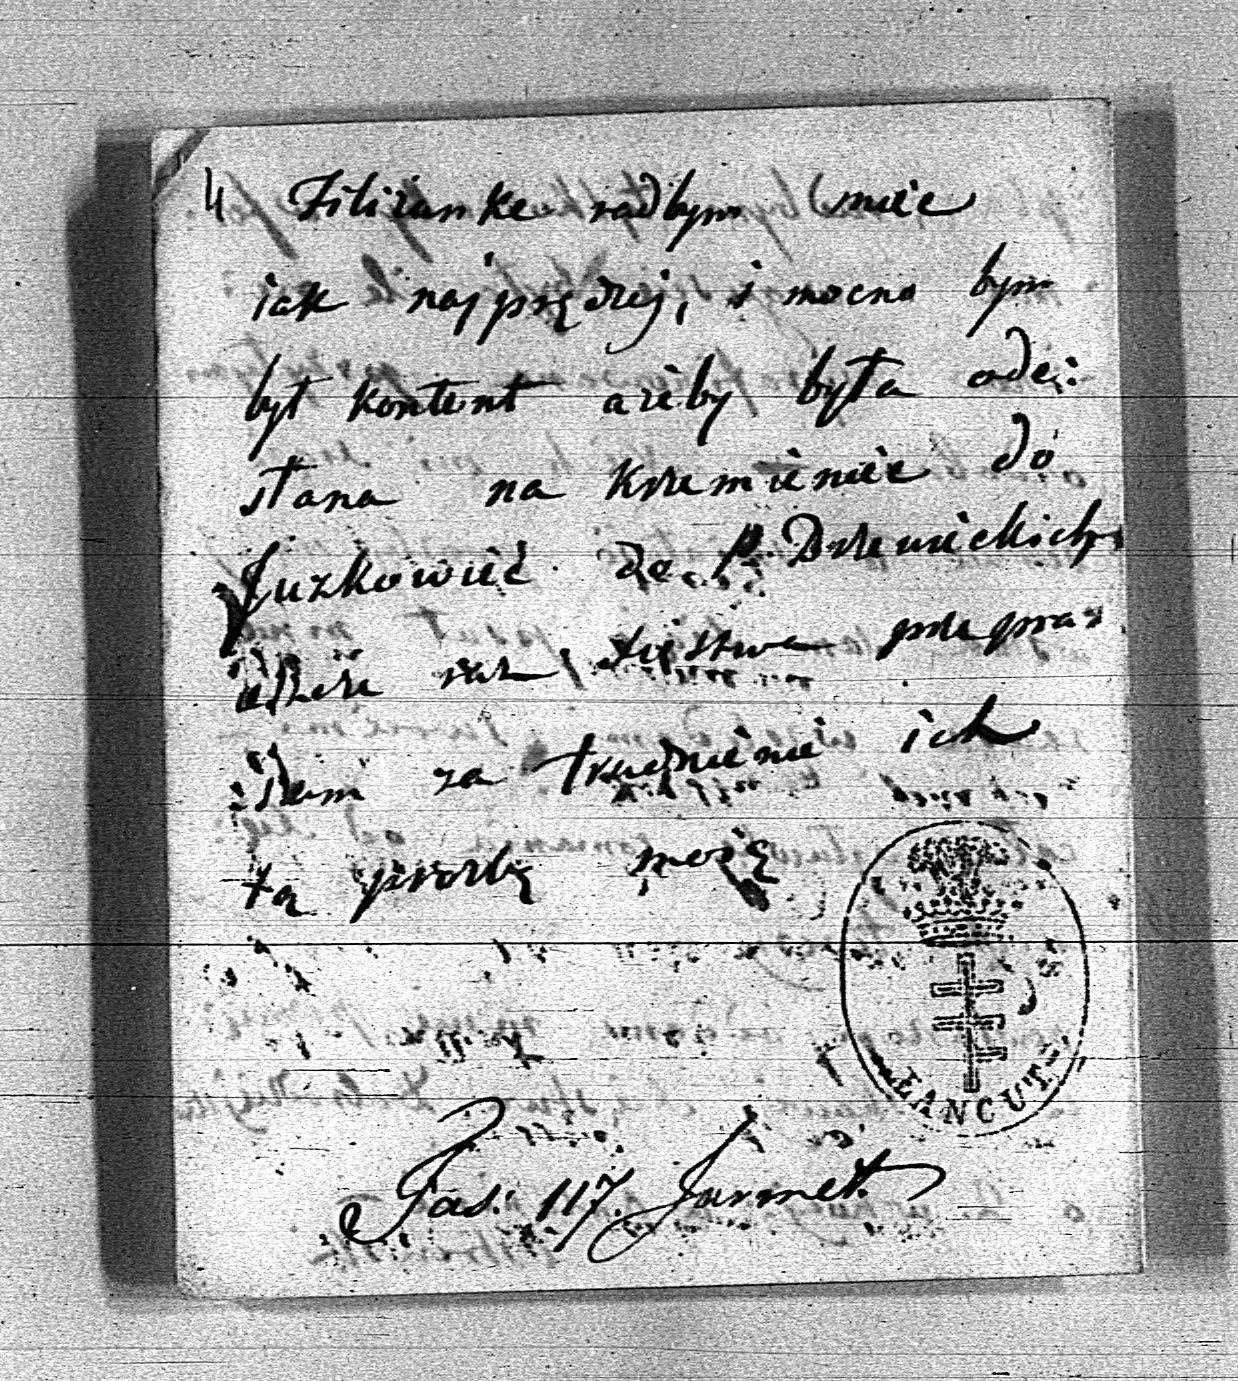 4 Filiżankę radbym mieć
iak najprędzej, i mocno bym
był kontent ażeby była ode:
słana na Krzemieniec do
Juzkowiec do P. Drzewieckich,
ieszcze raz
za trudnienie ich
tą proźbą moją
ŁAŃCUT
Fas: 117.